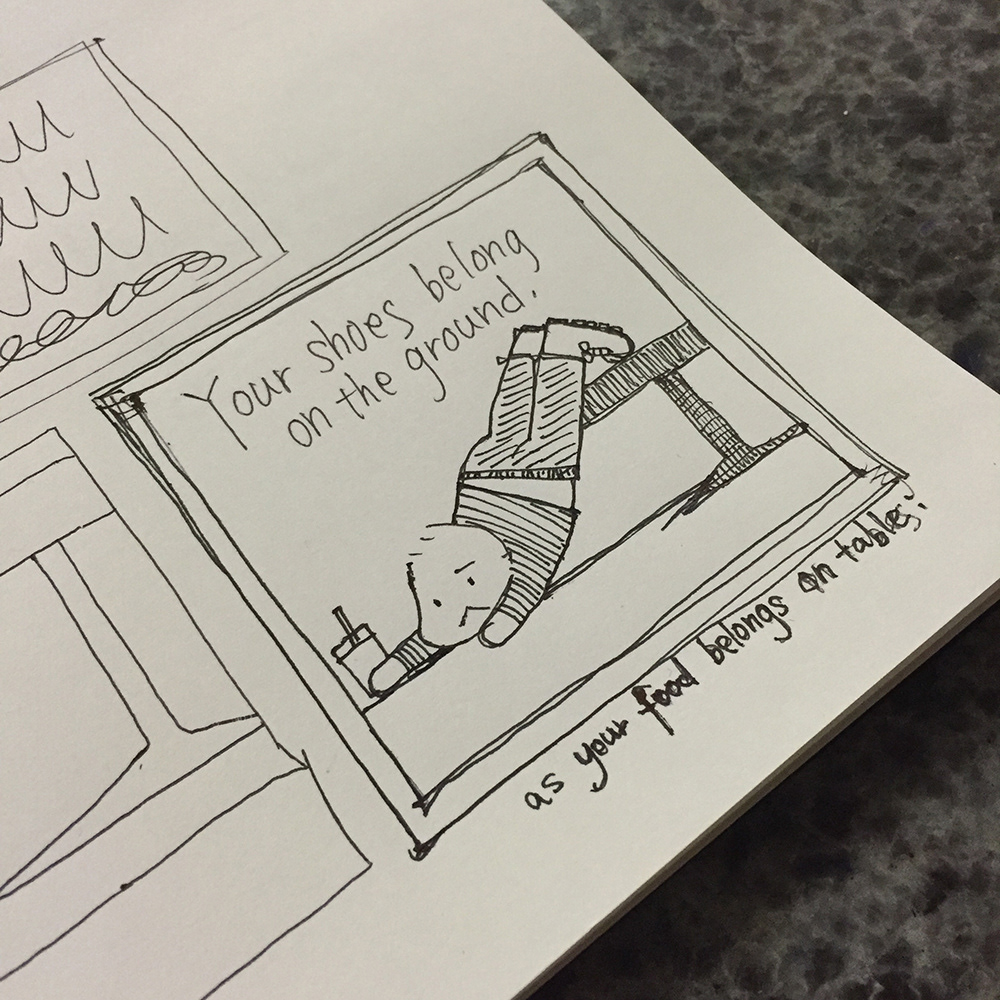 Your shoes belong
on the ground.
as your food belongs on tables;